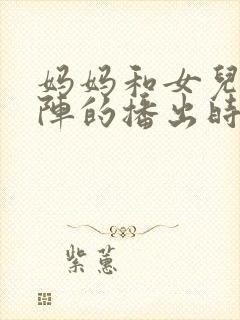 妈妈和女兒
陣的播出時
紫蕙